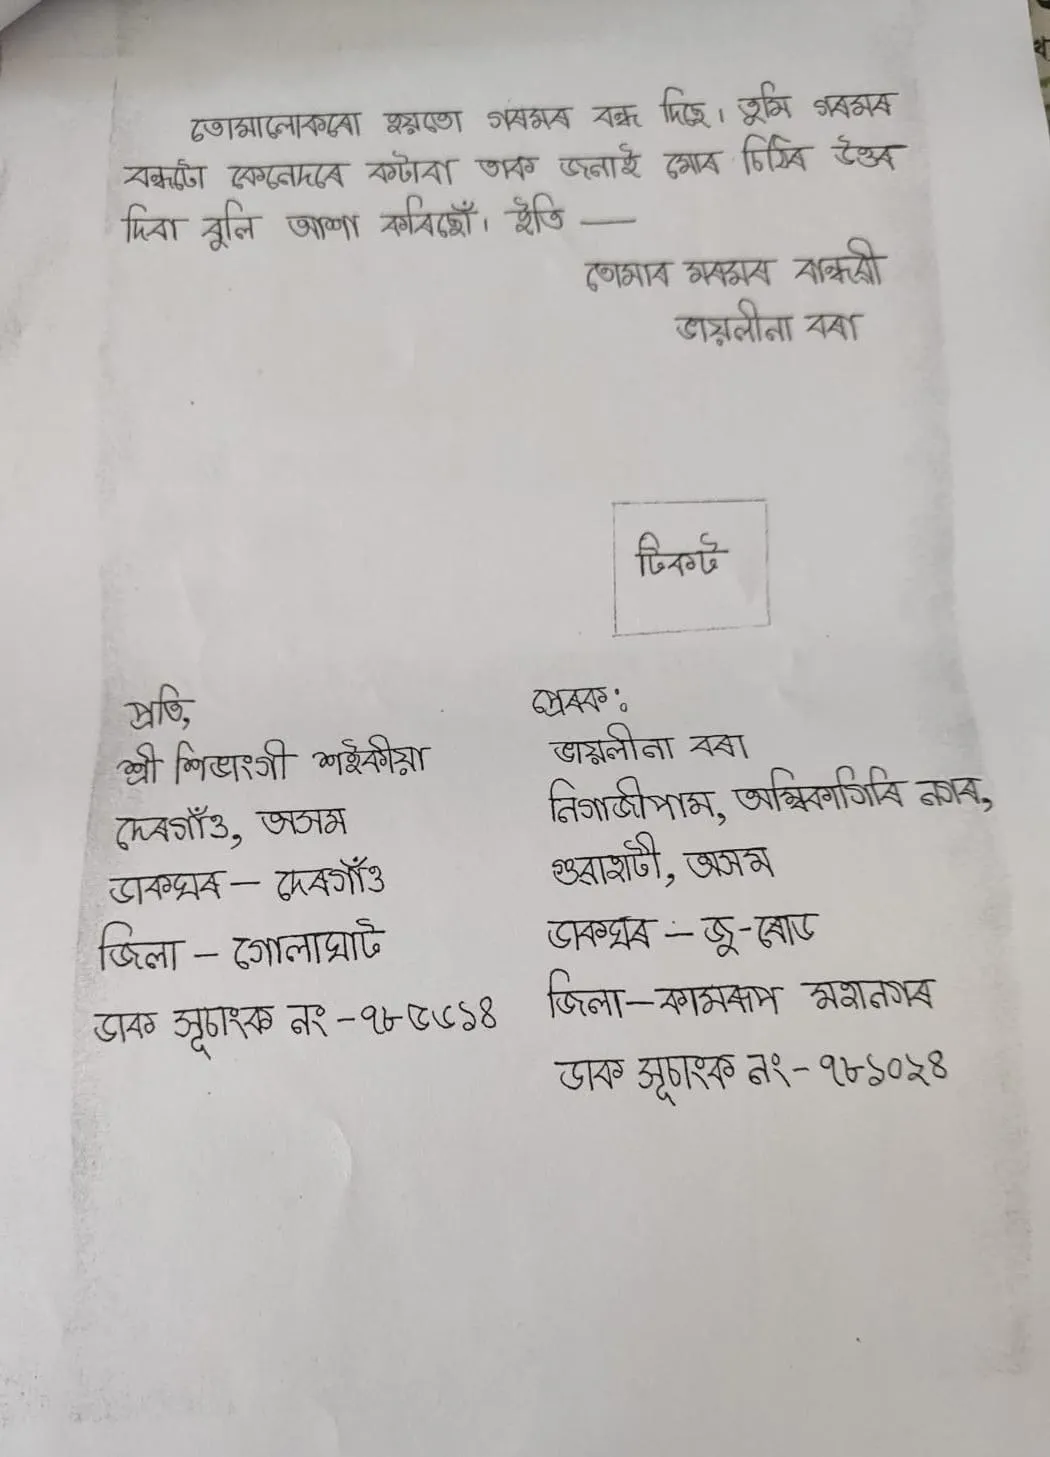 তোমালোকৰো হয়তো গৰমৰ বন্ধ দিছে। তুমি গৰমৰ
বন্ধটো কেনেদৰে কটাবা তাক জনাই মোৰ চিঠিৰ উত্তৰ
দিবা বুলি আশা কৰিছোঁ। ইতি —
তোমাৰ মৰমৰ বান্ধৱী
ভায়লীনা বৰা
টিকট
প্ৰতি,
শ্ৰী শিভাংগী শইকীয়া
দেৰগাঁও, অসম
ডাকঘৰ — দেৰগাঁও
জিলা — গোলাঘাট
ডাক সূচাংক নং - ৭৮৫৬১৪
প্ৰেৰক:
ভায়লীনা বৰা
নিগাজীপাম, অম্বিকাগিৰি নগৰ,
গুৱাহাটী, অসম
ডাকঘৰ — জু-ৰোড
জিলা — কামৰূপ মহানগৰ
ডাক সূচাংক নং - ৭৮১০২৪